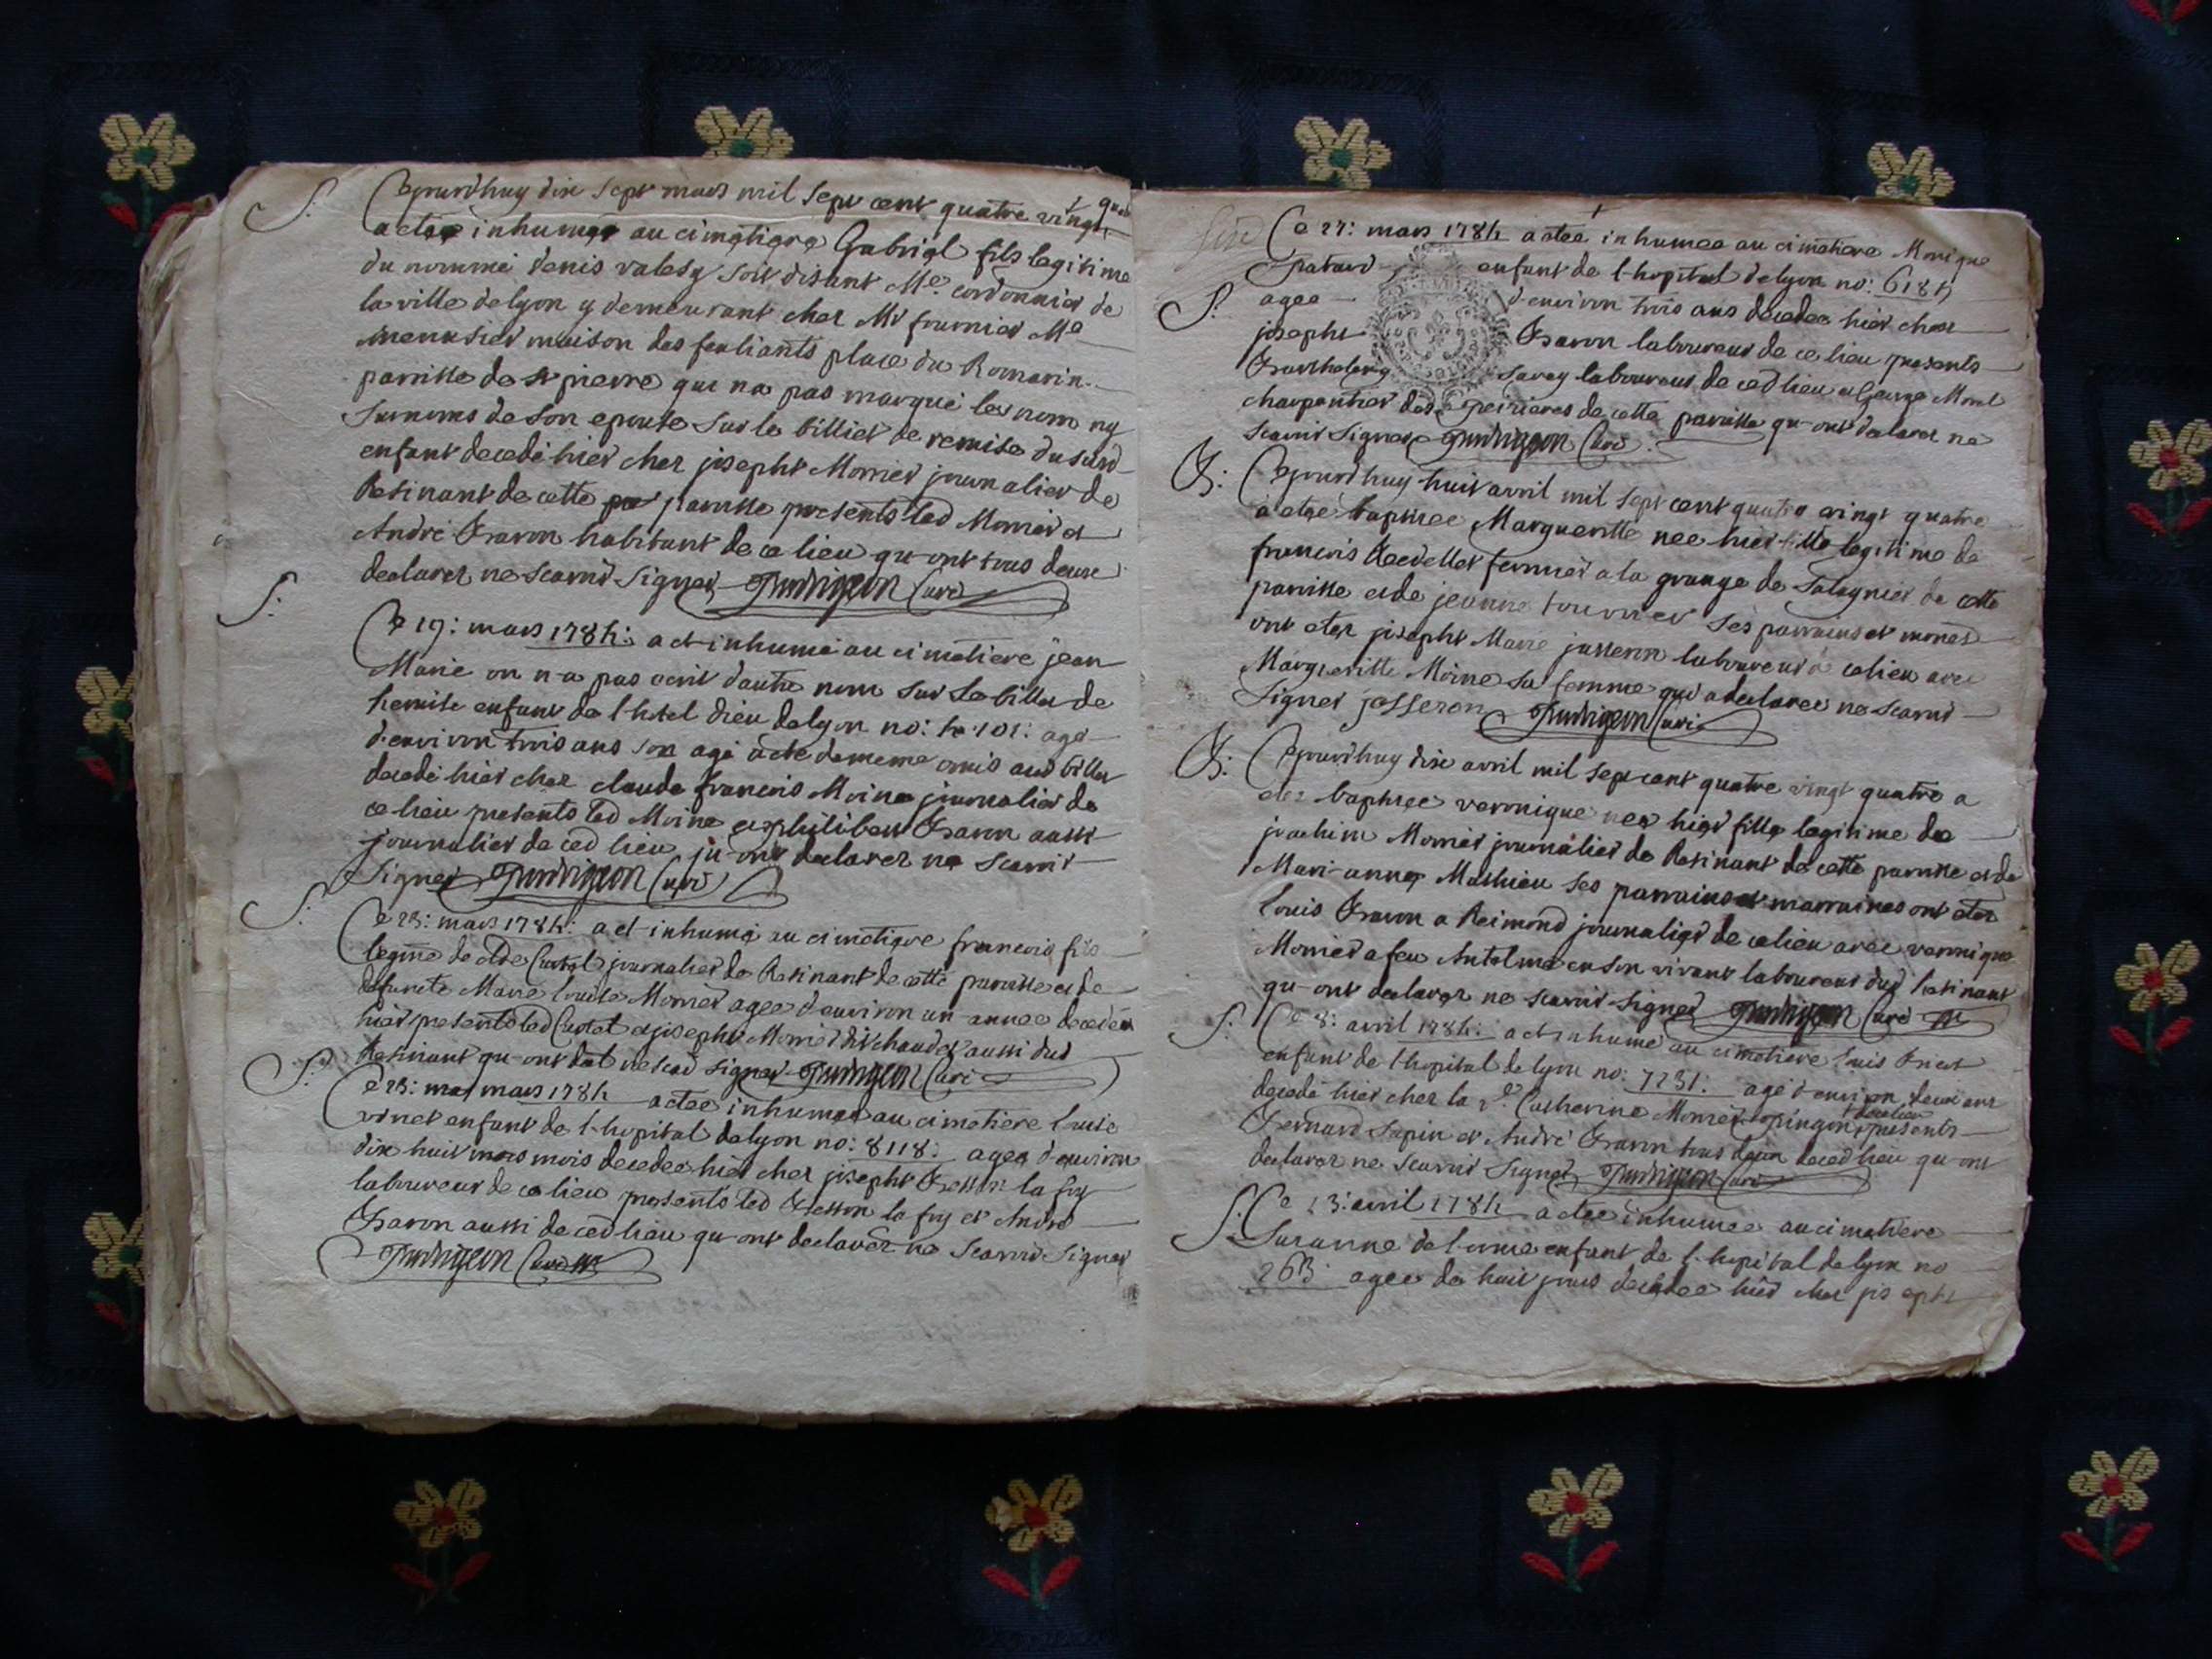 S. Cejourdhuy dix sept mars mil sept cent quatre vingt quatre
a eteé inhumer au cimetiere Gabriel fils legitime
du nommé denis valesy soit disant Me. cordonnier de
la ville de lyon y demeurant chez Mr fournier Me
menusier maison des feuliants place du Romarin
parroisse de st pierre qui na pas marqué les nom ny
surnoms de son epouse sur le billiet de remise dususd
enfant decedé hier chez joseph Monier journalier de
Resinant de cette parroisse presents led Monier et
André Baron habitant de ce lieu qu-ont tous deux
declarer ne scavoir signer Curé
S. Ce 19: mars 1784: a et inhumé au cimetiere jean
Marie on n-a pas ecrit dautre nom sur le billet de
remise enfant de l-hotel dieu de lyon no: 4101: agé
d-environ trois ans son age a eté de meme omis aud billet
decedé hier chez claude francois Moine journalier de
ce lieu presents led Moine et philibert Baron aussi
journalier de ced lieu qu-ont declarer ne scavoir
signer Curé
S. Ce 23: mars 1784: a et inhumé au cimetiere francois fils
legme de Curtet journalier de Resinant de cette parroisse et de
defunte Marie louise Monier agee d-environ un annee decedé
hier presents led Curtet et joseph Monier dit chaudet aussi dud
Resinant qu-ont decl ne scav signer Curé
S. Ce 23: mars 1784 a etee inhumee au cimetiere louise
vinet enfant de l-hopital de lyon no: 8118: agee d-environ
dix huit mois decedee hier chez joseph Besson la foy
laboureur de ce lieu presents led Besson la foy et André
Baron aussi de ced lieu qu-ont declarer ne scavoir signer
Curé
Ce 27: mars 1784 a etee inhumee au cimetiere Monique
patard enfant de l-hopital de lyon no: 6184
S. agee d-environ trois ans decedee hier chez
joseph Baron laboureur de ce lieu presents
Barthelemy Savey laboureur de ced lieu et George Morel
charpentier des de cette parroisse qu-ont declarer ne
scavoir signer Curé.
B. Cejourdhuy huit avril mil sept cent quatre vingt quatre
a eteé baptisee Margueritte nee hier fille legitime de
francois fermier a la grange de Salagnier de cette
parroisse et de jeanne tournier ses parrains et marrès
ont eter joseph Marie josseron laboureur a celieu avec
Margueritte Moine sa femme qui a declaree ne scavoir
signer josseron Curé
B. Cejourdhuy dix avril mil sept cent quatre vingt quatre a
etez baptisee veronique nee hier fille legitime de
joachim Monier journalier de Resinant de cette parroisse et de
Mari-anne Mathieu ses parrains et marraines ont eter
louis Baron a Reimond journalier de ce lieu avec veronique
Monier a feu Antelme en son vivant laboureur dud Resinant
qu-ont declarer ne scavoir signer Curé
S. Ce 8: avril 1784: a et inhumé au cimetiere louis
enfant de l-hopital de lyon no: 7231: agé d-environ deux ans
decedé hier chez la ve. Catherine Monier pingon de ce lieu presents
Bernard Sapin et André Baron tous deux de ced lieu qu-ont
declarer ne scavoir signer Curé
S. Ce 13: avril 1784 a etee inhumee au cimetiere
Suzanne delorme enfant de l-hopital de lyon no
263: agee de huit jours decedee hier chez joseph